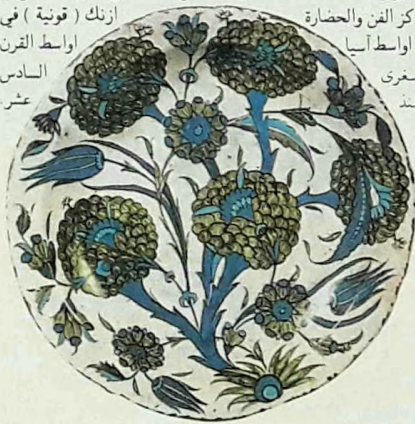 كز الفن والحضارة
اواسط آسيا
غرى
ازنك ( قونية ) في
اواسط القرن
السادس
عشر.